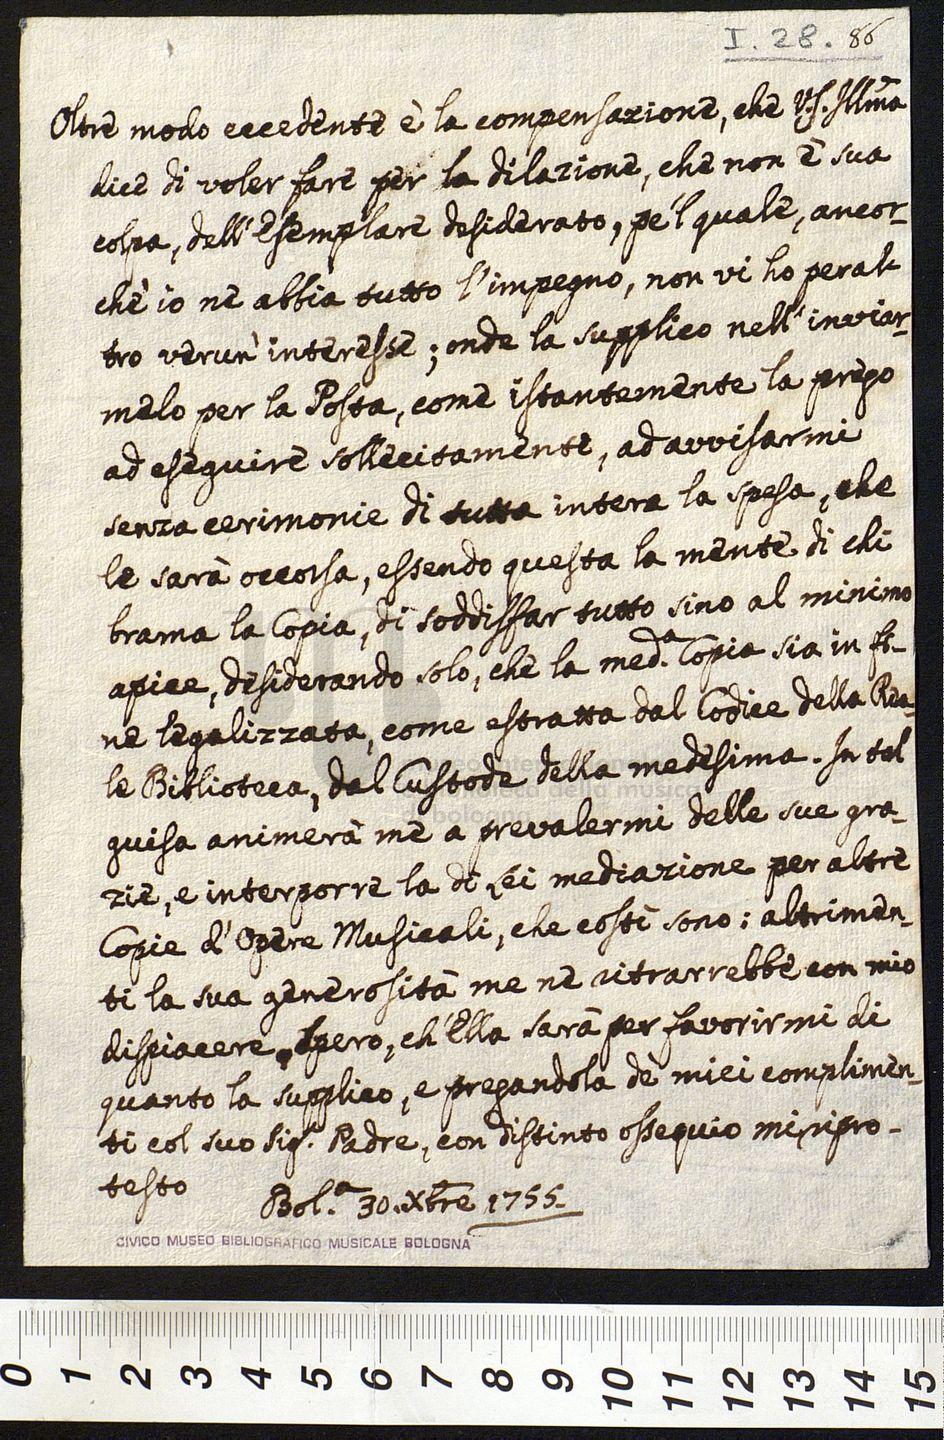 I. 28. 86
Oltre modo eccedente è la compensazione, che V.S. Illma
dice di voler fare per la dilazione, che non è sua
colpa, dell'Esemplare desiderato, pe'l quale, ancor-
chè io ne abbia tutto l'impegno, non vi ho peral-
tro verun' interesse; onde la supplico nell'inviar-
melo per la Posta, come istantemente la prego
ad eseguire sollecitamente, ad avvisarmi
senza cerimonie di tutta intera la spesa, che
le sarà occorsa, essendo questa la mente di chi
brama la Copia, di soddisfar tutto sino al minimo
apice, desiderando solo, che la med.a Copia sia in fi-
ne legalizzata, come estratta dal Codice della Rea-
le Biblioteca, dal Custode della medesima. In tal
guisa animerà me a prevalermi delle sue gra-
zie, e interporre la di Lei mediazione per altre
Copie d'Opere Musicali, che costì sono: altrimen-
ti la sua generosità me ne ritrarrebbe con mio
dispiacere. Spero, ch'Ella sarà per favorirmi di
quanto la supplico, e pregandola de' miei complimen-
ti col suo Sig.r Padre, con distinto ossequio mi ripro-
testo
Bol.a 30. Xbre 1755.
CIVICO MUSEO BIBLIOGRAFICO MUSICALE BOLOGNA
museo internazionale
e biblioteca della musica
di bologna
0 1 2 3 4 5 6 7 8 9 10 11 12 13 14 15